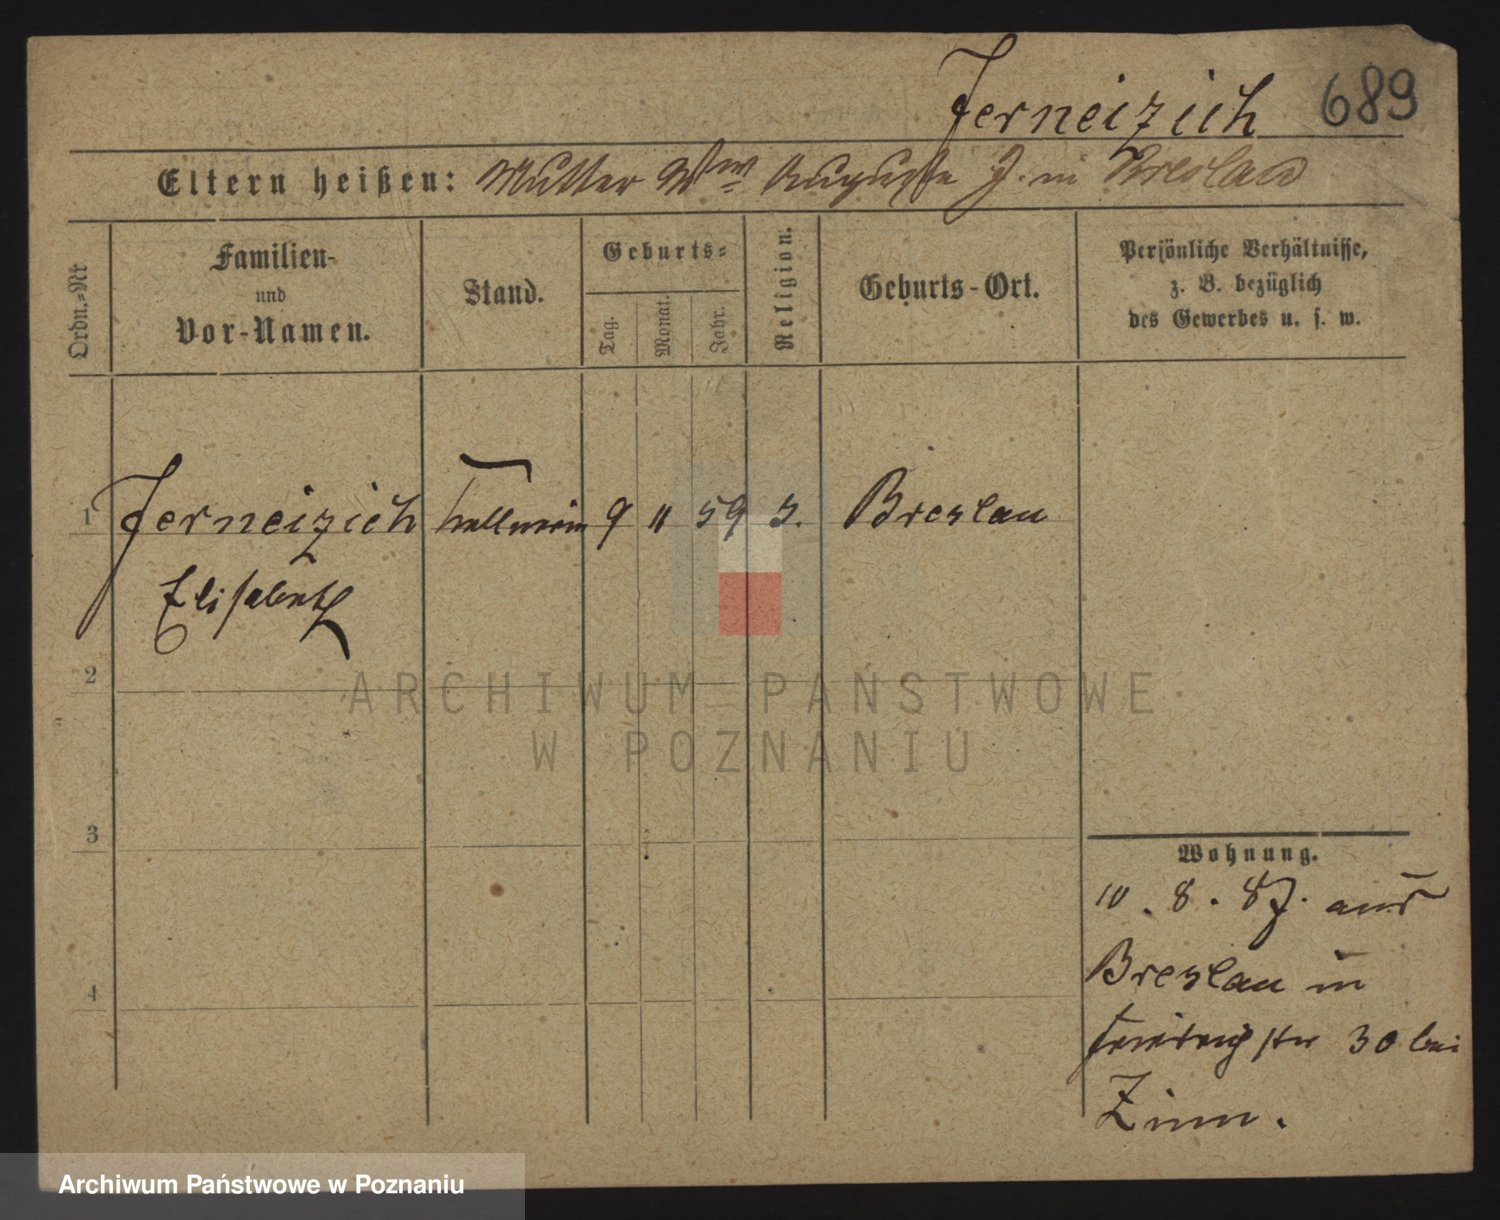 Jerneizich 689
Eltern heißen: Mutter Ww Auguste J. in Breslau
Ordn.-Nr
Familien-
und
Vor-Namen.
Stand.
Geburts-
Tag.
Monat.
Jahr.
Religion.
Geburts-Ort.
Persönliche Verhältnisse,
z. B. bezüglich
des Gewerbes u. s. w.
1 Jerneizich Kellnerin 9 11 59 Breslau
Elisabeth
2
ARCHIWUM PAŃSTWOWE
W POZNANIU
3
Wohnung.
10. 8. 87. aus
Breslau in
4
30 bei
Zinn.
Archiwum Państwowe w Poznaniu